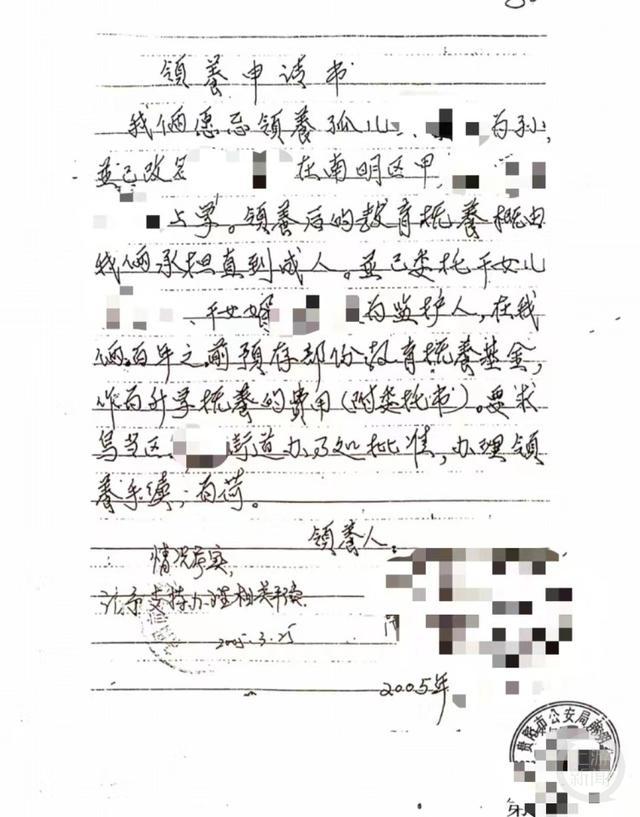 领养申请书
我俩愿意领养孤儿 为孙,
並已改名 在南明区甲
上学。领养后的教育抚养概由
我俩承担直到成人。並已委托干女儿
、干女婿 为监护人,在我
俩百年之前预存部份教育抚养基金,
作为升学抚养的费用(附委托书)。要求
乌当区 街道办 批准,办理领
养手续,为荷。
领养人:
情况属实,
请予支持办理相关手续.
2005.3.25
2005年
贵阳市公安局南明
上游新闻
第